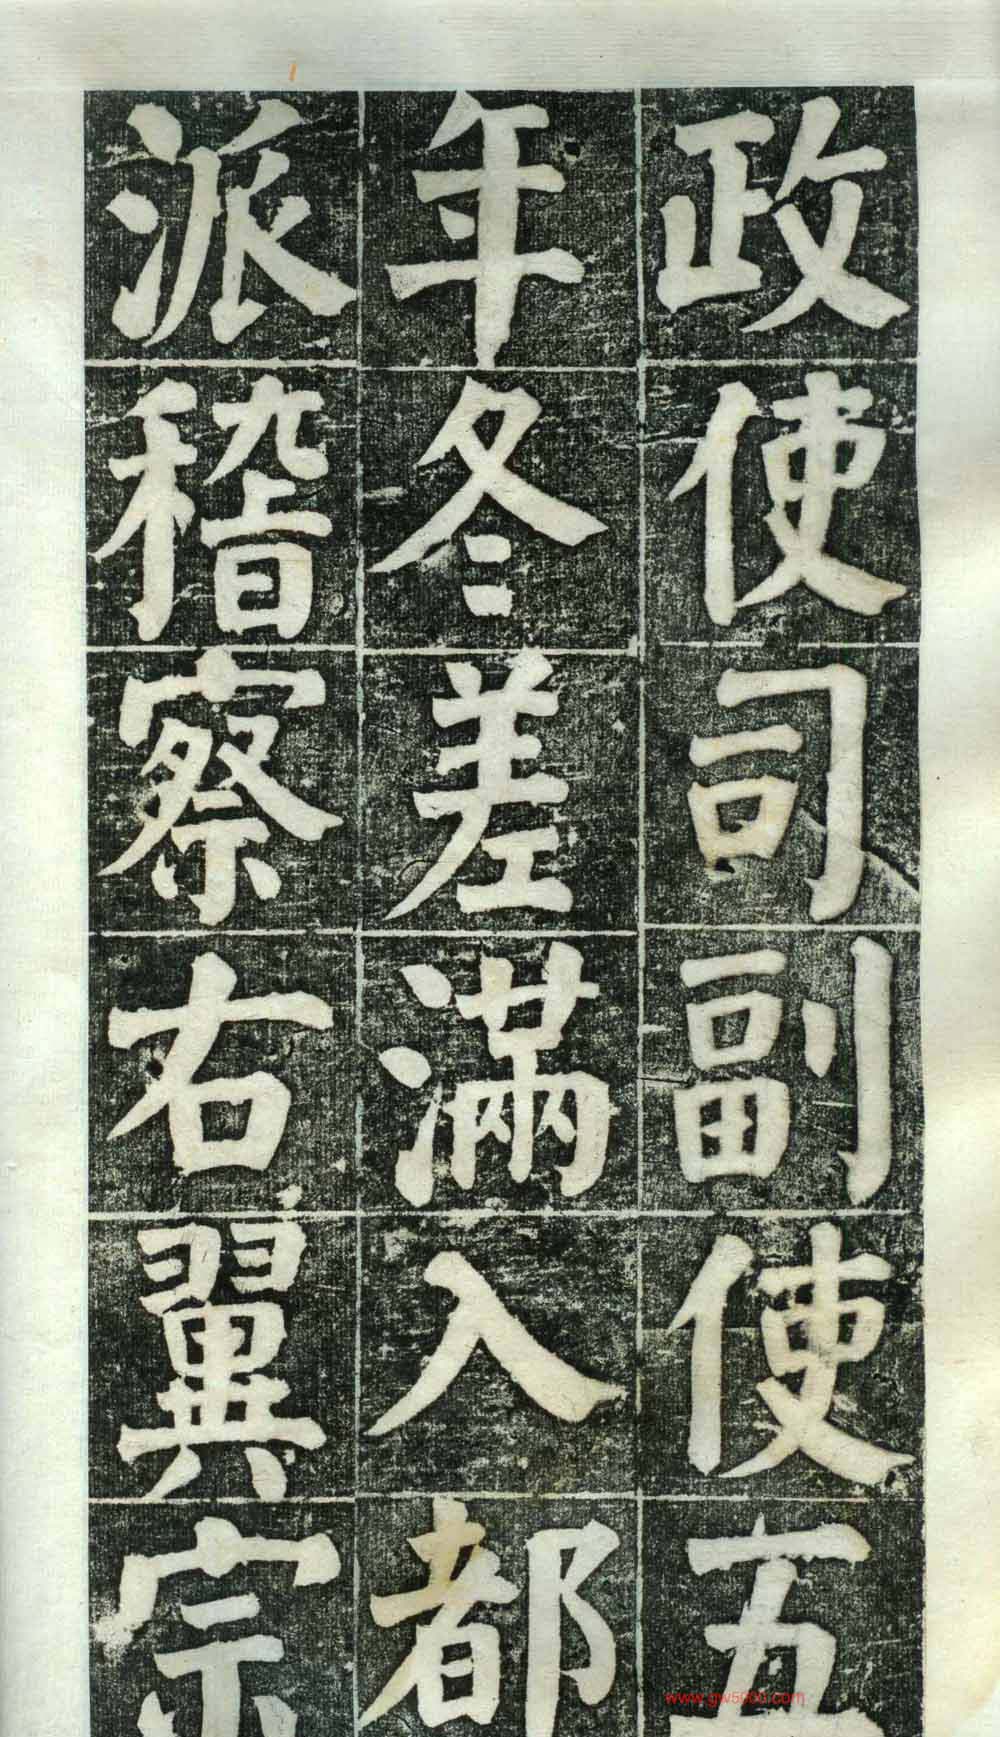 政使司副使五
年冬差滿入都
派稽察右翼宗
www.gw5000.com